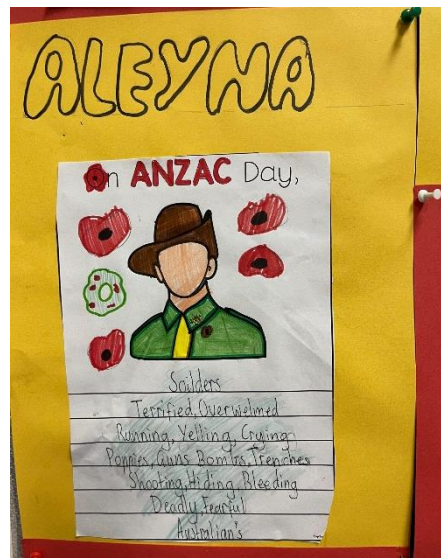 ALEYNA
On ANZAC Day,
Soilders
Terrified, Overwelmed
Running, Yelling, Crying
Poppies, Guns Bombs, Trenches
Shooting, Hiding, Bleeding
Deadly, Fearful
Australian's